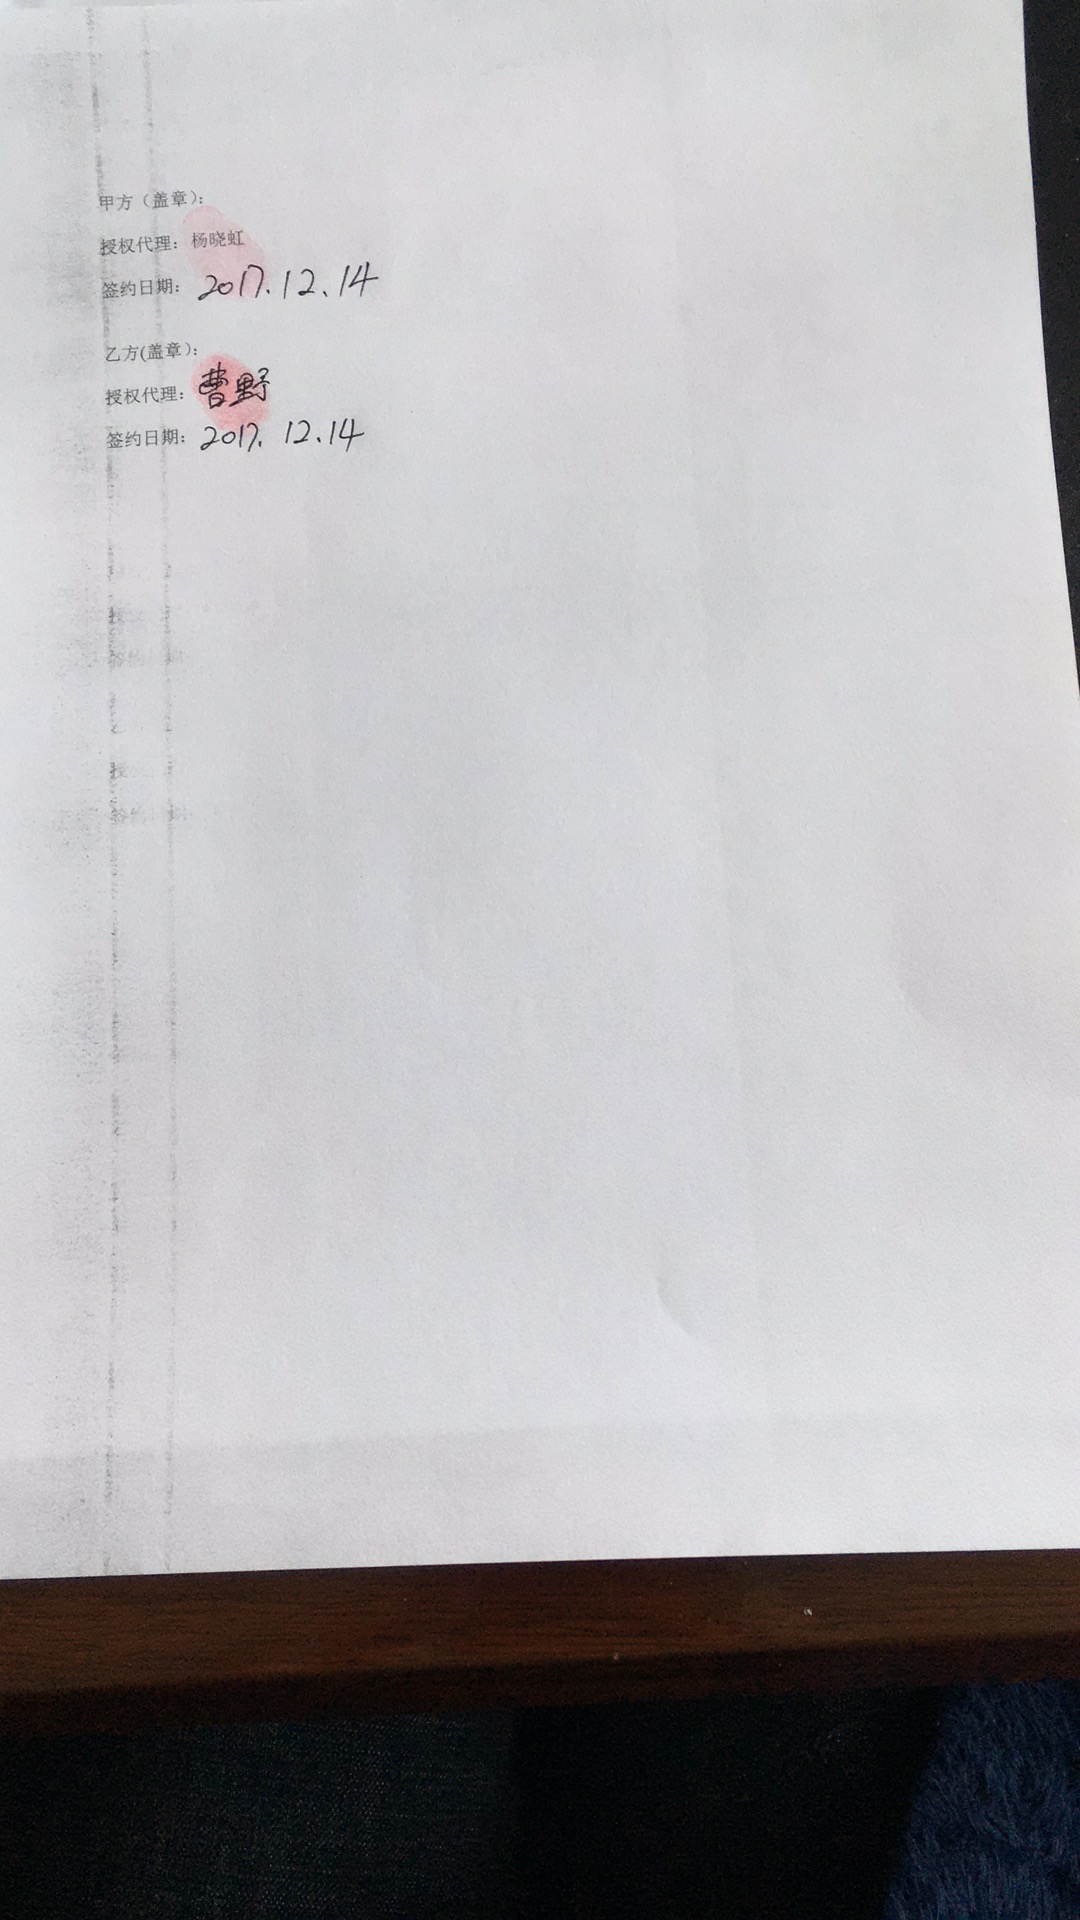 甲方（盖章）：
授权代理：杨晓虹
签约日期：2017.12.14
乙方(盖章)：
授权代理：曹野
签约日期：2017.12.14